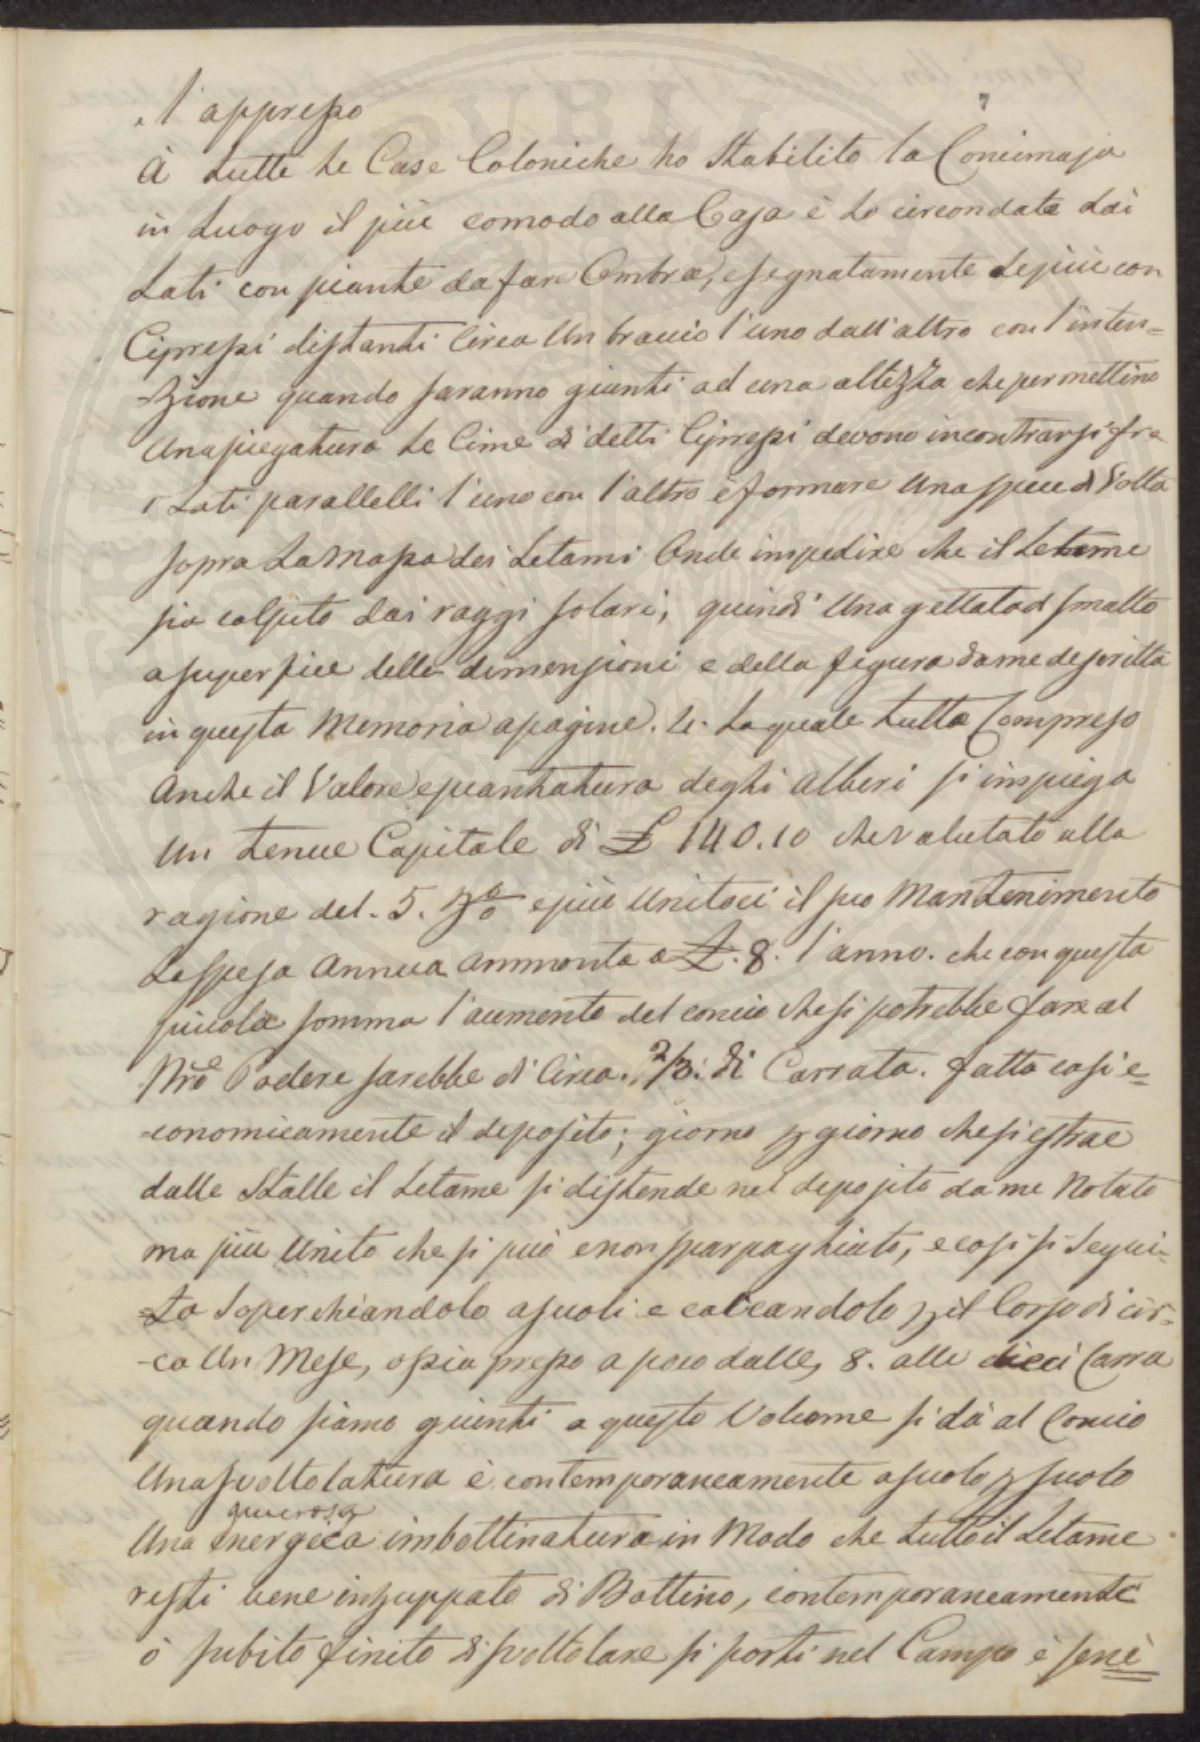 7
l'appresso
A tutte le Case Coloniche ho Stabilito la Concimaja
in Luogo il più comodo alla Casa è lo circondate dai
Lati con piante da fare Ombra, e segnatamente le più con
Cipressi distanti Circa Un braccio l'uno dall'altro con l'inten=
-zione quando saranno giunti ad una altezza che permettino
Una piegatura le Cime di detti Cipressi devono incontrarsi fra
i Lati parallelli l'uno con l'altro è formare Una specie di Volta
sopra La Massa dei Letami Onde impedire che il Letame
sia colpito dai raggi solari, quindi Una gettata di smalto
a superfice delle dimensioni e della figura da me descritta
in questa Memoria a pagine. La quale tutta Compreso
Anche il Valore e piantatura degli Alberi si impiega
Un tenue Capitale di £ 140.10 che valutato alla
ragione del. 5. % e più Unitoci il suo Mantenimento
La Spesa Annua Ammonta a £. 8. l'anno. che con questa
piccola somma l'aumento del concio che si potrebbe fare al
Nro Podere sarebbe di Circa. 2/3. di Carrata. fatto così e=
-conomicamente il deposito; giorno p giorno che si estrae
dalle Stalle il Letame si distende nel deposito da me Notato
ma più Unito che si può e non sparpagliato, e così si Segui=
-ta Soperchiandolo a suoli e calcandolo p il Corso di cir=
-ca Un Mese, ossia presso a poco dalle, 8. alle dieci Carra
quando siamo giunti a questo Volume si dà al Concio
Una svoltolatura è contemporaneamente a suolo p suolo
generosa
Una Energica imbottinatura in Modo che tutto il Letame
resti bene inzuppato di Bottino, contemporaneamente
ò subito finito di svoltolare si porti nel Campo è se ne è